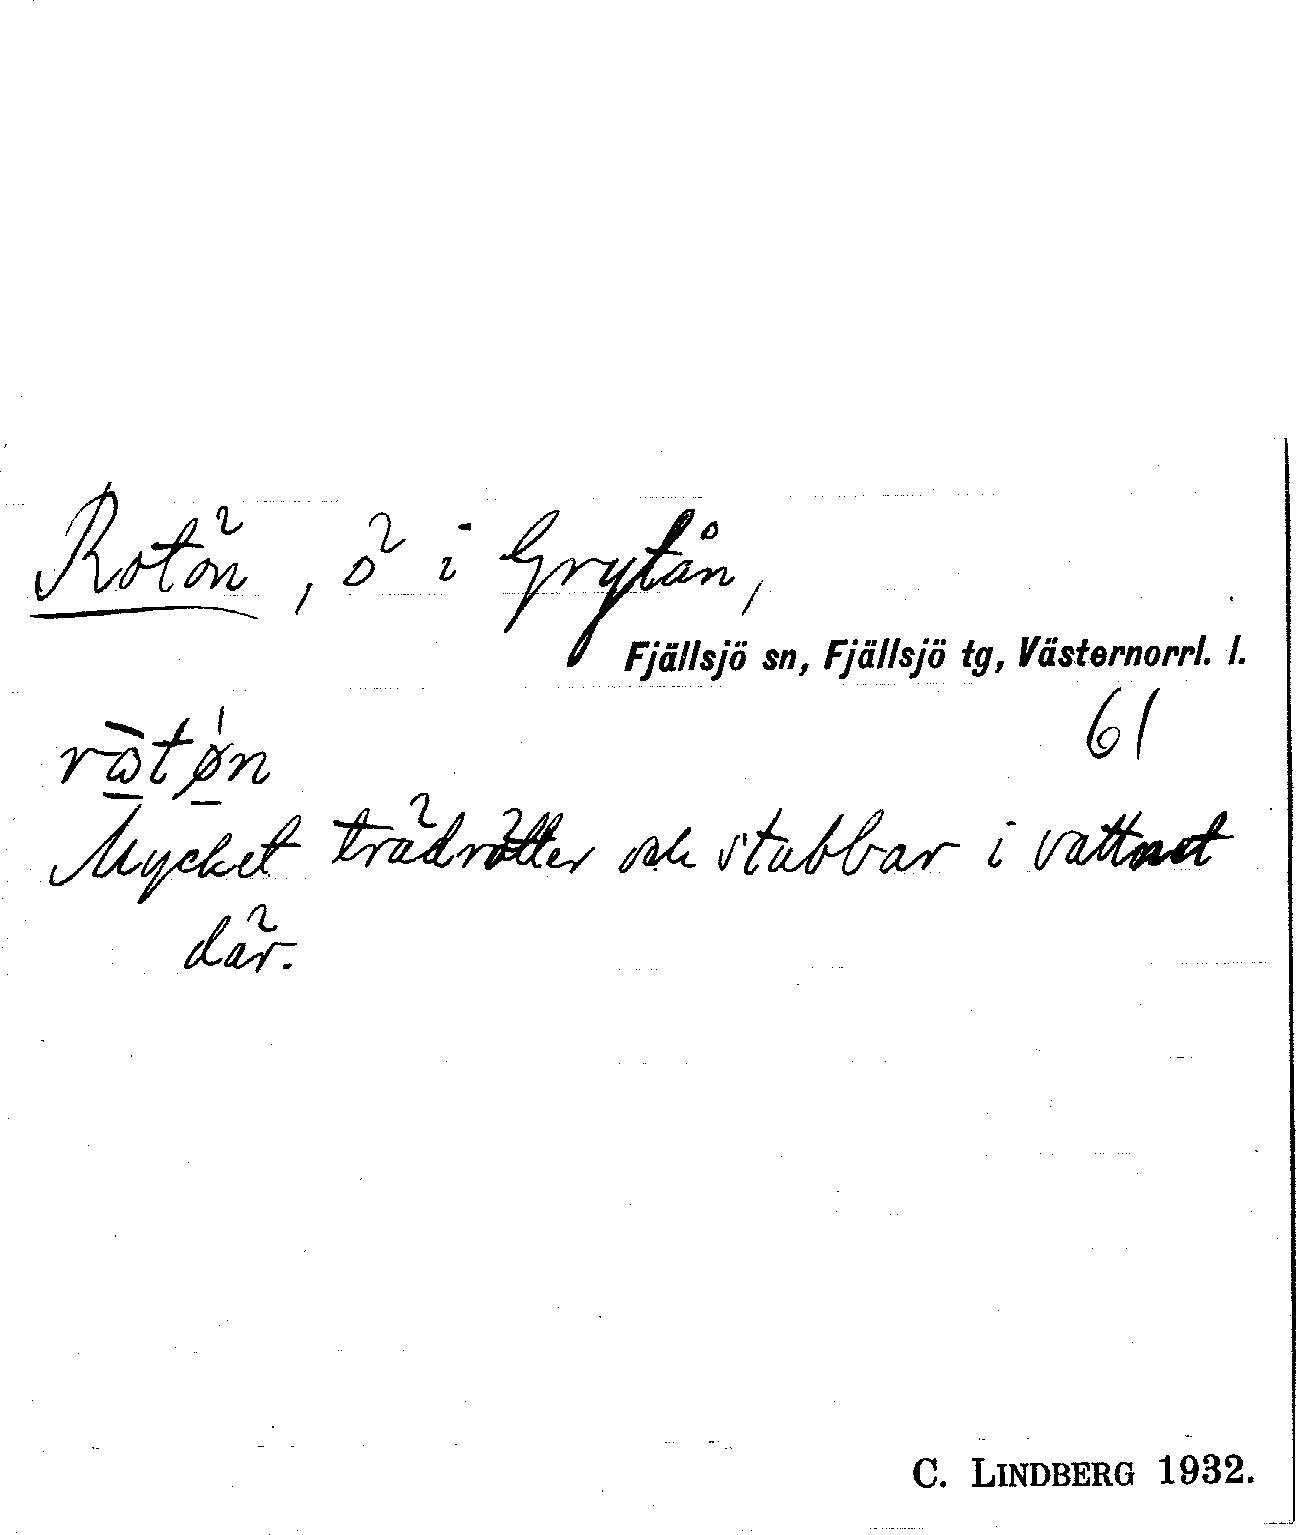 Rotön, ö i Grytån,
Fjällsjö sn, Fjällsjö tg, Västernorrl. l.
61
rɷ̀tǿn
Mycket trädrötter och stubbar i vattnet
där.
C. LINDBERG 1932.